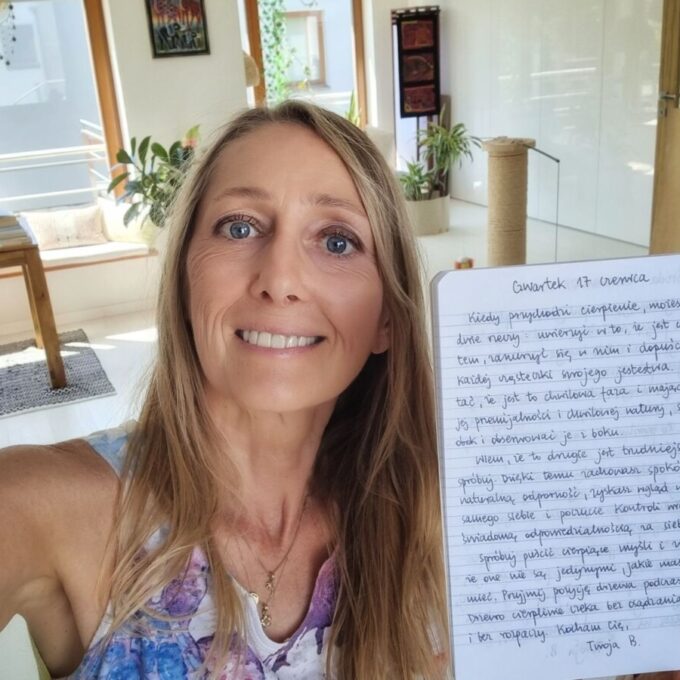 Czwartek 17 czerwca
Kiedy przychodzi cierpienie, możes
dwie rzeczy: uwierzyć w to, że jest
tem, zanurzyć się w nim i dopuści
każdej cząsteczki swojego jestestwa
tać, że jest to chwilowa faza i mając
jej przemijalności i chwilowej natury, s
obok i obserwować je z boku.
Wiem, że to drugie jest trudniejs
spróbuj. Dzięki temu zachowasz spokó
naturalną odporność, zyskasz wgląd w
samego siebie i poczucie kontroli
świadomą odpowiedzialnością za sieb
Spróbuj puścić cierpiące myśli i
że one nie są jedynymi jakie mas
mieć. Przyjmij pozycję drzewa podczas
Drzewo cierpliwie czeka bez osądzania
i bez rozpaczy. Kocham Cię,
Twoja B.